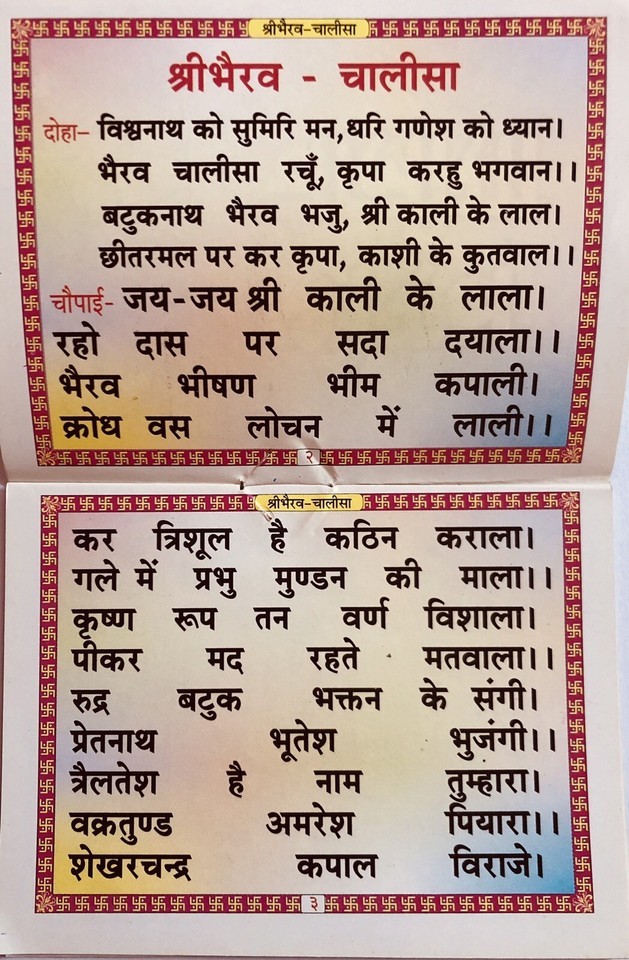 श्रीभैरव-चालीसा
श्रीभैरव - चालीसा
दोहा- विश्वनाथ को सुमिरि मन,धरि गणेश को ध्यान।
भैरव चालीसा रचूँ, कृपा करहु भगवान।।
बटुकनाथ भैरव भजु, श्री काली के लाल।
छीतरमल पर कर कृपा, काशी के कुतवाल।।
चौपाई- जय-जय श्री काली के लाला।
रहो दास पर सदा दयाला।।
भैरव भीषण भीम कपाली।
क्रोध वस लोचन में लाली।।
२
श्रीभैरव-चालीसा
कर त्रिशूल है कठिन कराला।
गले में प्रभु मुण्डन की माला।।
कृष्ण रूप तन वर्ण विशाला।
पीकर मद रहते मतवाला।।
रुद्र बटुक भक्तन के संगी।
प्रेतनाथ भूतेश भुजंगी।।
त्रैलतेश है नाम तुम्हारा।
वक्रतुण्ड अमरेश पियारा।।
शेखरचन्द्र कपाल विराजे।
३